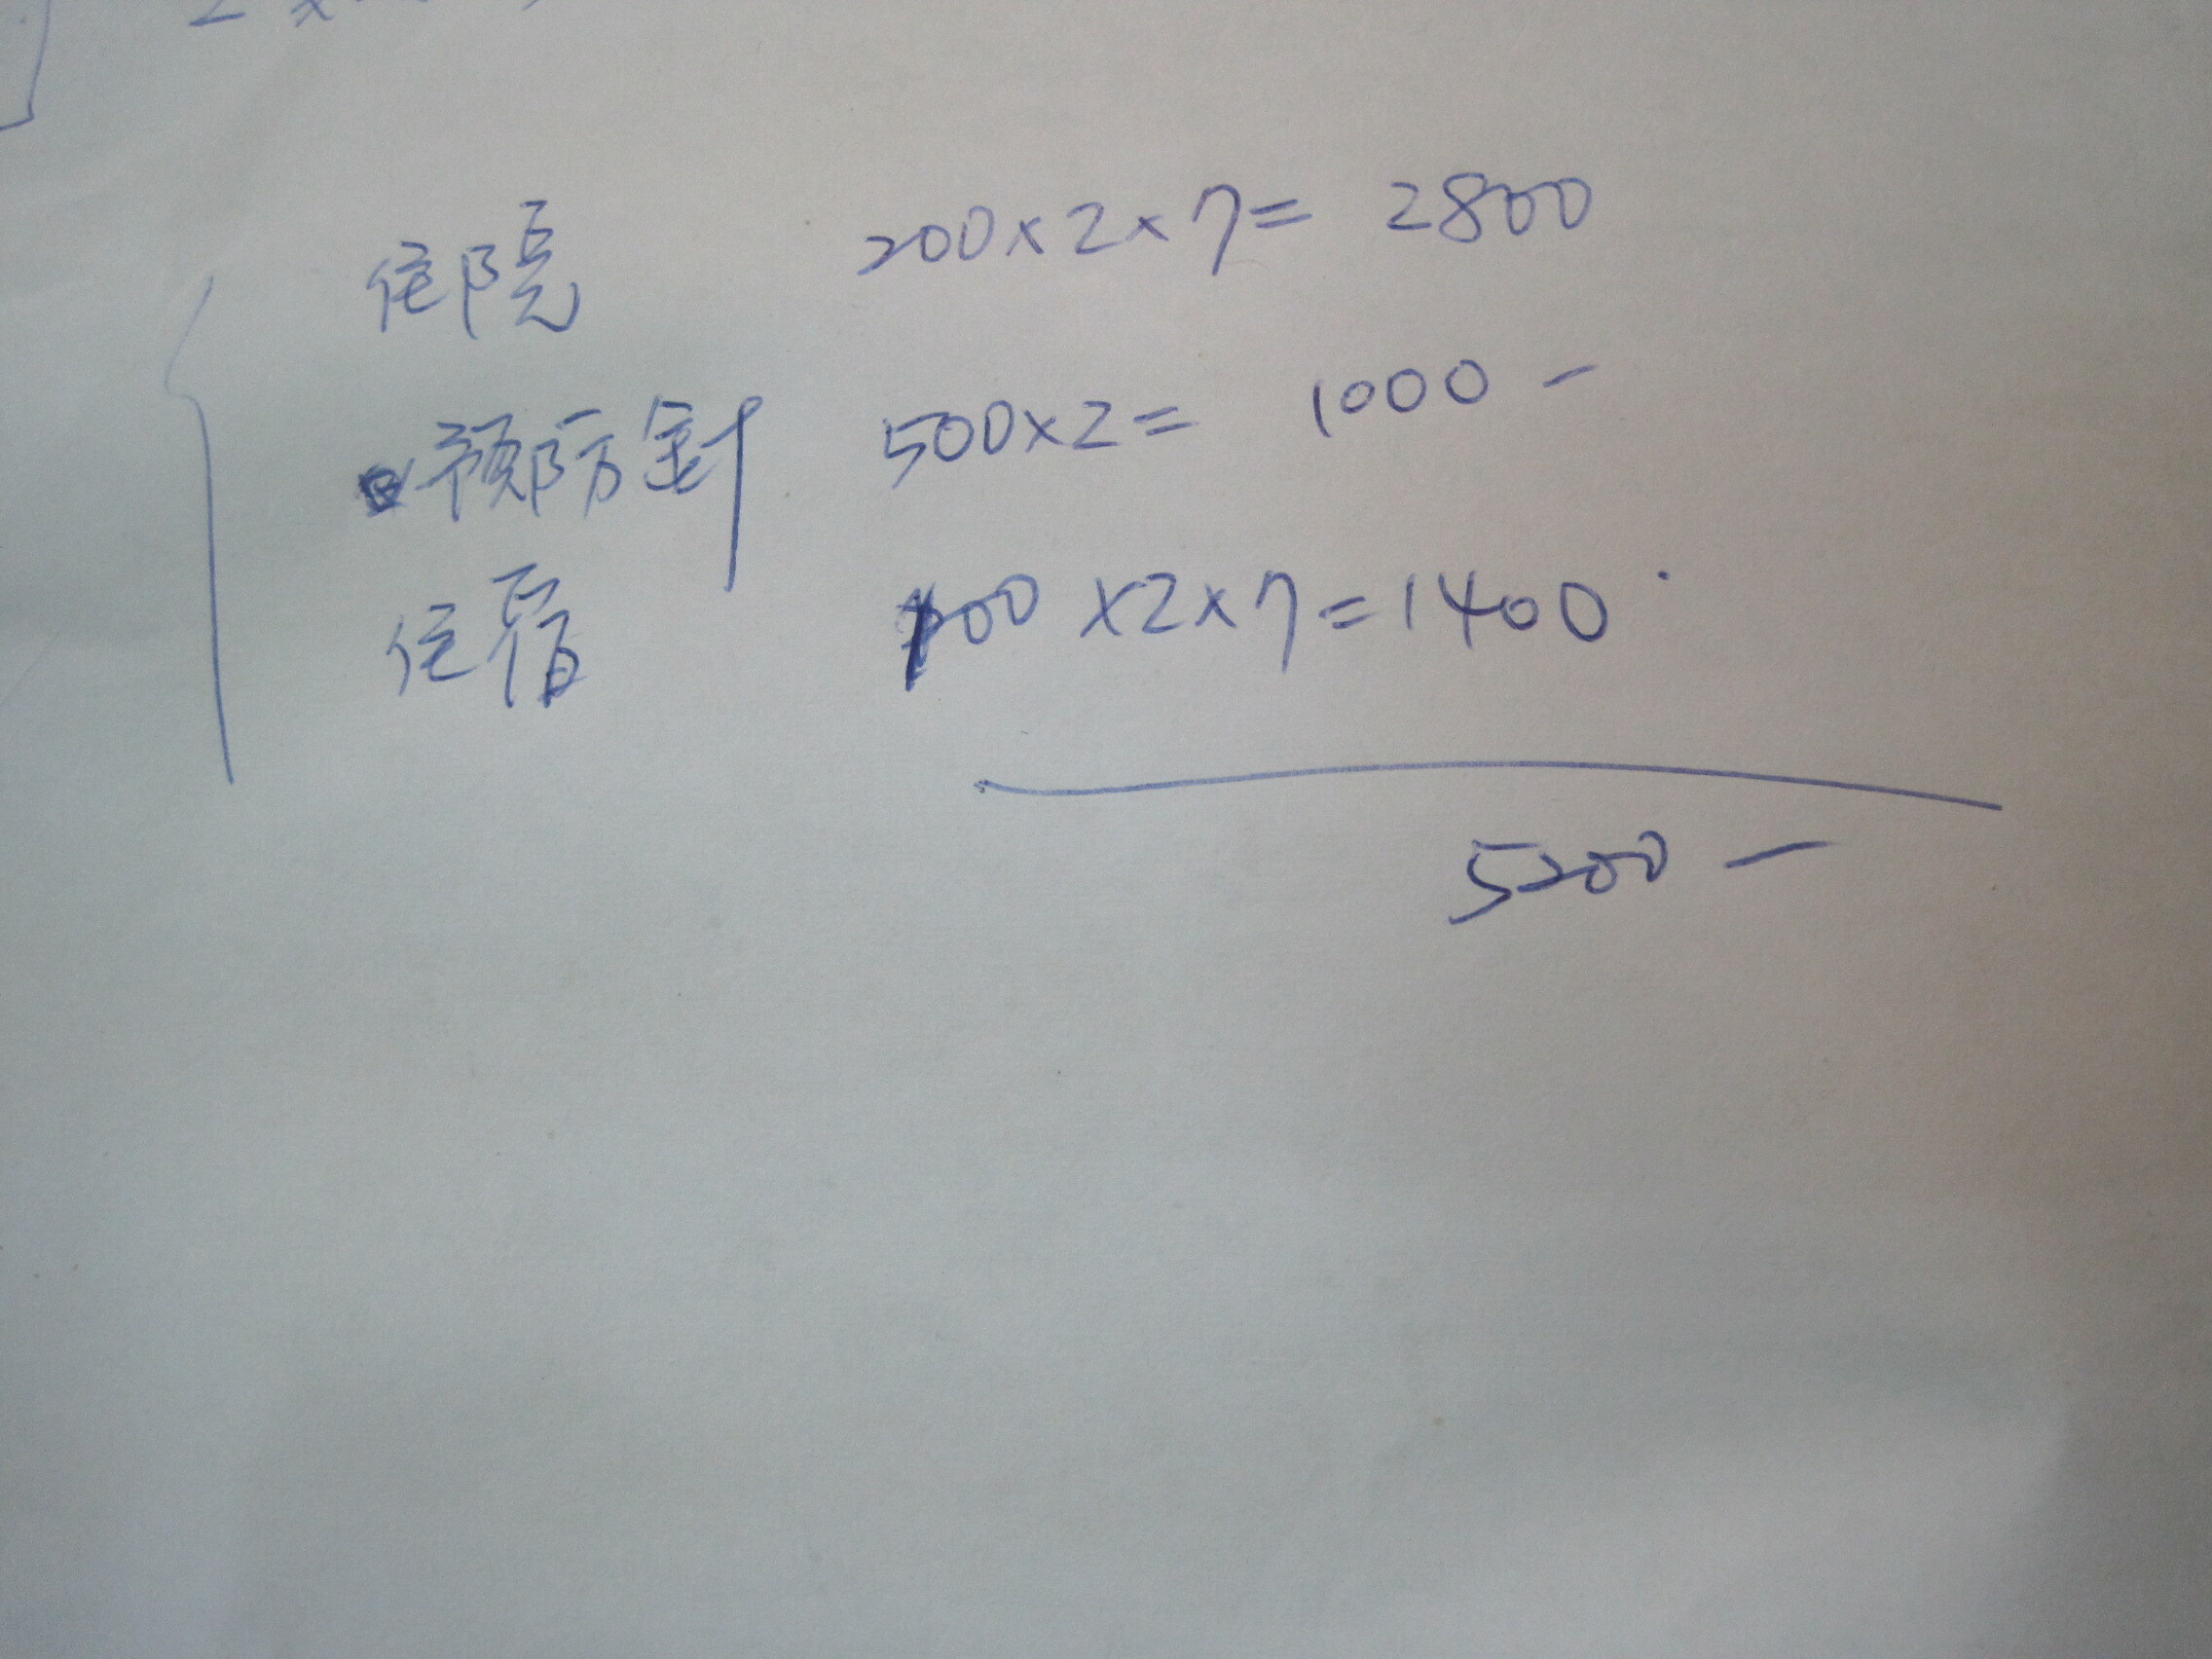 住院 200×2×7= 2800
预防针 500×2= 1000 -
住宿 100 ×2×7=1400
5200 -